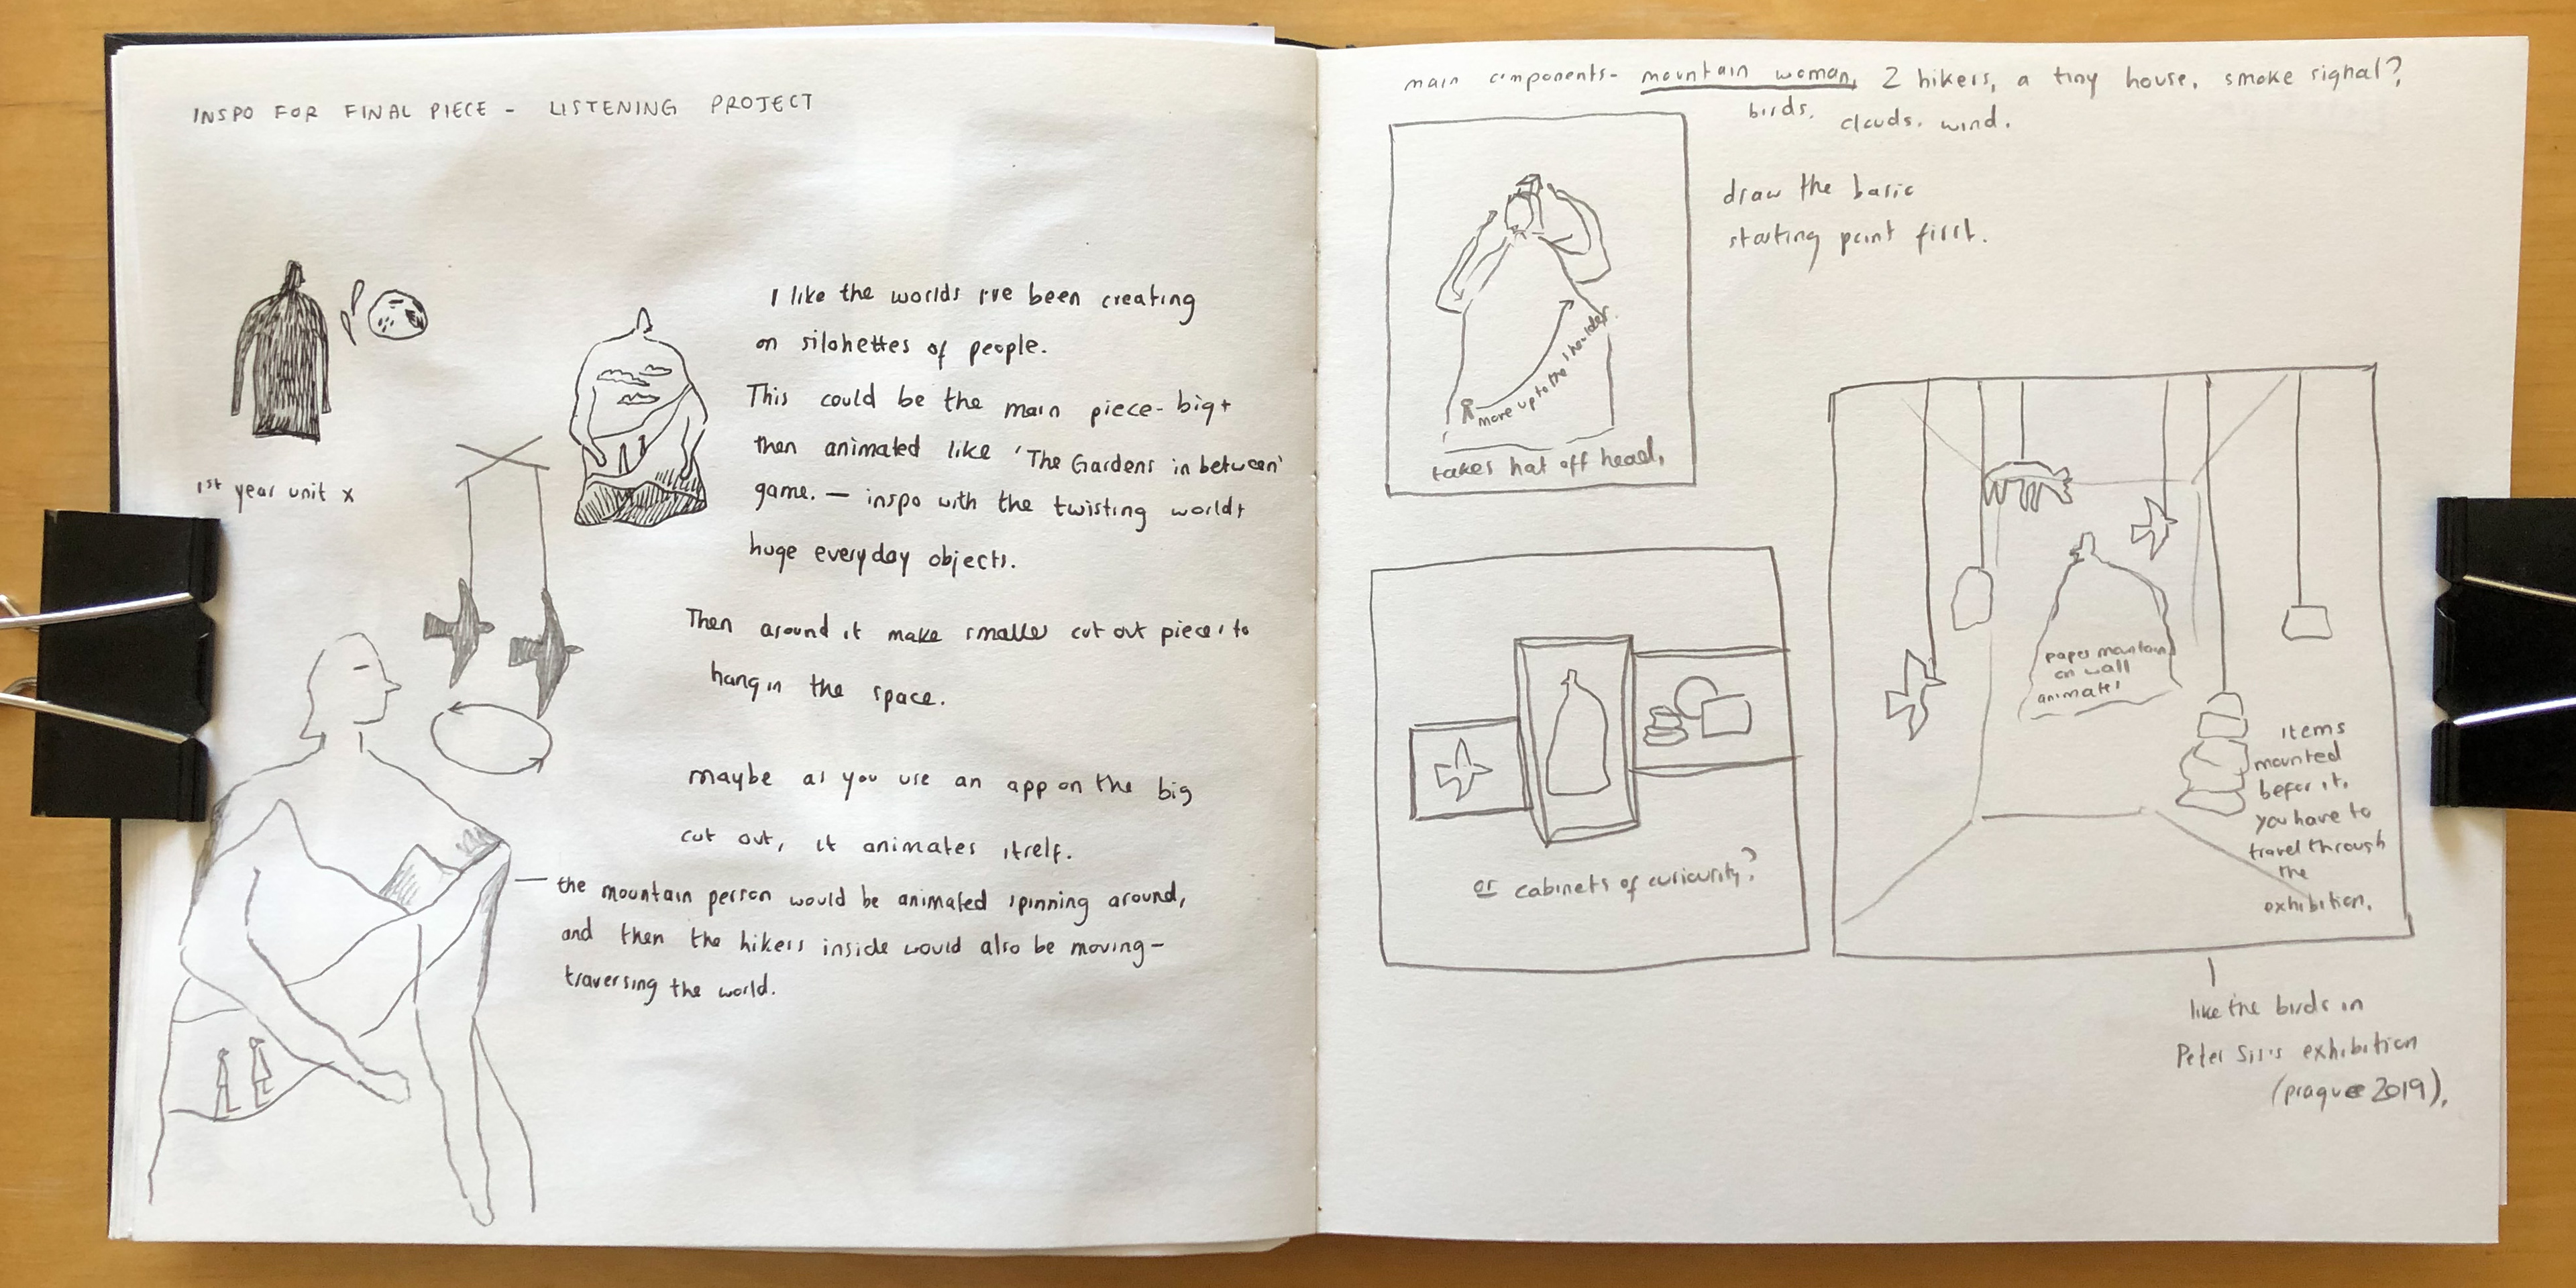 INSPO FOR FINAL PIECE - LISTENING PROJECT
1st year unit x
I like the worlds i've been creating
on silohettes of people.
This could be the main piece - big +
then animated like 'The Gardens in between'
game. — inspo with the twisting world +
huge everyday objects.
Then around it make smaller cut out pieces to
hang in the space.
maybe as you use an app on the big
cut out, it animates itself.
— the mountain person would be animated spinning around,
and then the hikers inside would also be moving -
traversing the world.
main components - mountain woman, 2 hikers, a tiny house, smoke signal?,
birds. clouds. wind.
draw the basic
starting point first.
move up to the shoulder.
takes hat off head,
or cabinets of curiourity?
paper mountain
on wall
animates
items
mounted
befor it.
you have to
travel through
the
exhibition.
like the birds in
Peter Sis's exhibition
(prague 2019),